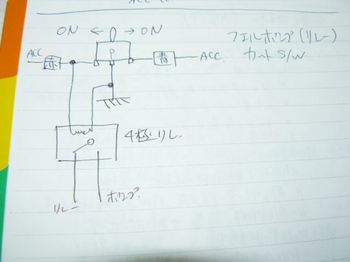 ON ← → ON
フェルポンプ (リレー)
カット S/W
ACC
赤
P
青
ACC
4極リレー
リレー
ポンプ